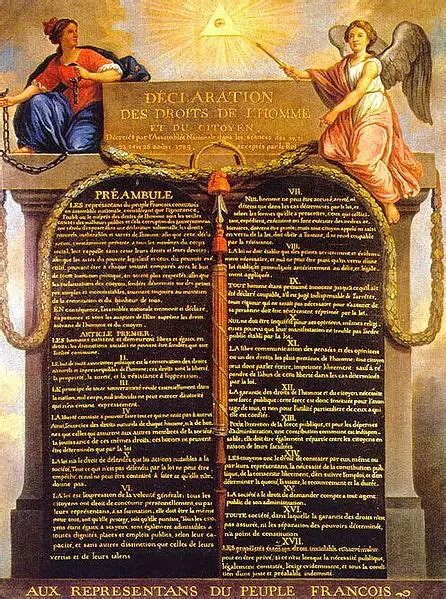 DÉCLARATION
DES DROITS DE L'HOMME
ET DU CITOYEN,
Décrétés par l'Assemblée Nationale dans les séances des 20, 21
23, 24 et 26 août 1789, acceptés par le Roi
PRÉAMBULE
LES représentans du peuple François, constitués
en assemblée nationale, considérant que l'ignorance,
l'oubli ou le mépris des droits de l'homme sont les seules
causes des malheurs publics et de la corruption des gouvernemens
ont résolu d'exposer dans une déclaration solemnelle, les droits
naturels, inaliénables et sacrés de l'homme; afin que cette décla-
ration, constamment présente à tous les membres du corps
social, leur rappelle sans cesse leurs droits et leurs devoirs;
que les actes du pouvoir législatif et ceux du pouvoir exé-
cutif, pouvant être à chaque instant comparés avec le but
de toute institution politique, en soient plus respectés; afin que
les réclamations des citoyens, fondées désormais sur des principes
simples et incontestables, tournent toujours au maintien
de la constitution et du bonheur de tous.
EN conséquence, l'assemblée nationale reconnoit et déclare,
en présence et sous les auspices de l'Etre suprême les droits
suivans de l'homme et du citoyen.
ARTICLE PREMIER.
LES hommes naissent et demeurent libres et égaux en
droits. les distinctions sociales ne peuvent être fondées que sur
l'utilité commune.
II.
LE but de toute association politique est la conservation des droits
naturels et imprescriptibles de l'homme; ces droits sont la liberté,
la propriété, la sureté, et la résistance à l'oppression.
III.
LE principe de toute souveraineté réside essentiellement dans
la nation, nul corps, nul individu ne peut exercer d'autorité
qui n'en émane expressément.
IV.
LA liberté consiste à pouvoir faire tout ce qui ne nuit pas à autrui
Ainsi, l'exercice des droits naturels de chaque homme, n'a de bor-
nes que celles qui assurent aux autres membres de la société
la jouissance de ces mêmes droits; ces bornes ne peuvent
être déterminées que par la loi
V.
LA loi n'a le droit de défendre que les actions nuisibles à la
société. Tout ce qui n'est pas défendu par la loi ne peut être
empêché, et nul ne peut être contraint à faire ce qu'elle n'or-
donne pas.
VI.
LA loi est l'expression de la volonté générale; tous les
citoyens ont droit de concourir personnellement, ou par
leurs représentans, à sa formation; elle doit être la même
pour tous, soit qu'elle protege, soit qu'elle punisse. Tous les cito-
yens étant égaux à ses yeux, sont également admissibles à
toutes dignités, places et emplois publics, selon leur ca-
pacité, et sans autres distinctions que celles de leurs
vertus et de leurs talens.
VII.
NUL homme ne peut être accusé, arrêté, ni
détenu que dans les cas déterminés par la loi, et
selon les formes qu'elle a prescrites, ceux qui sollici-
tent, expédient, exécutent ou font exécuter des ordres ar-
bitraires, doivent être punis; mais tout citoyen appelé ou saisi
en vertu de la loi, doit obéir à l'instant, il se rend coupable
par la résistance.
VIII.
LA loi ne doit établir que des peines strictement et évidem-
ment nécessaires, et nul ne peut être puni qu'en vertu d'une
loi établie et promulguée antérieurement au délit, et légale-
ment appliquée.
IX.
TOUT homme étant présumé innocent jusqu'à ce qu'il ait
été déclaré coupable, s'il est jugé indispensable de l'arrêter,
toute rigueur qui ne serait pas nécessaire pour s'assurer de
sa personne doit être sévèrement réprimée par la loi.
NUL ne doit être inquiété pour ses opinions, mêmes religi-
euses pourvu que leur manifestation ne trouble pas l'ordre
public établi par la loi.
XI.
LA libre communication des pensées et des opinions
est un des droits les plus précieux de l'homme; tout citoyen
peut donc parler, écrire, imprimer librement, sauf à ré-
pondre de l'abus de cette liberté dans les cas déterminés
par la loi.
XII.
LA garantie des droits de l'homme et du citoyen nécessite
une force publique; cette force est donc instituée pour l'avan-
tage de tous, et non pour l'utilité particuliere de ceux à qui
elle est confiée.
XIII.
POUR l'entretien de la force publique, et pour les dépenses
d'administration, une contribution commune est indispen-
sable; elle doit être également répartie entre les citoyens en
raison de leurs facultés.
XIV.
LES citoyens ont le droit de constater par eux même ou
par leurs représentans, la nécessité de la contribution pub-
lique, de la consentir librement, d'en suivre l'emploi, et d'en
déterminer la quotité, l'assiette, le recouvrement et la durée.
XV.
LA société a le droit de demander compte à tout agent
public de son administration.
XVI.
TOUTE société, dans laquelle la garantie des droits n'est
pas assurée, ni la séparation des pouvoirs déterminée,
n'a point de constitution
XVII.
LES propriétés étant un droit inviolable et sacré, nul ne
peut en être privé, si ce n'est lorsque la nécessité publique,
légalement constatée, l'exige évidemment, et sous la condi-
tion d'une juste et préalable indemnité.
AUX REPRESENTANS DU PEUPLE FRANCOIS